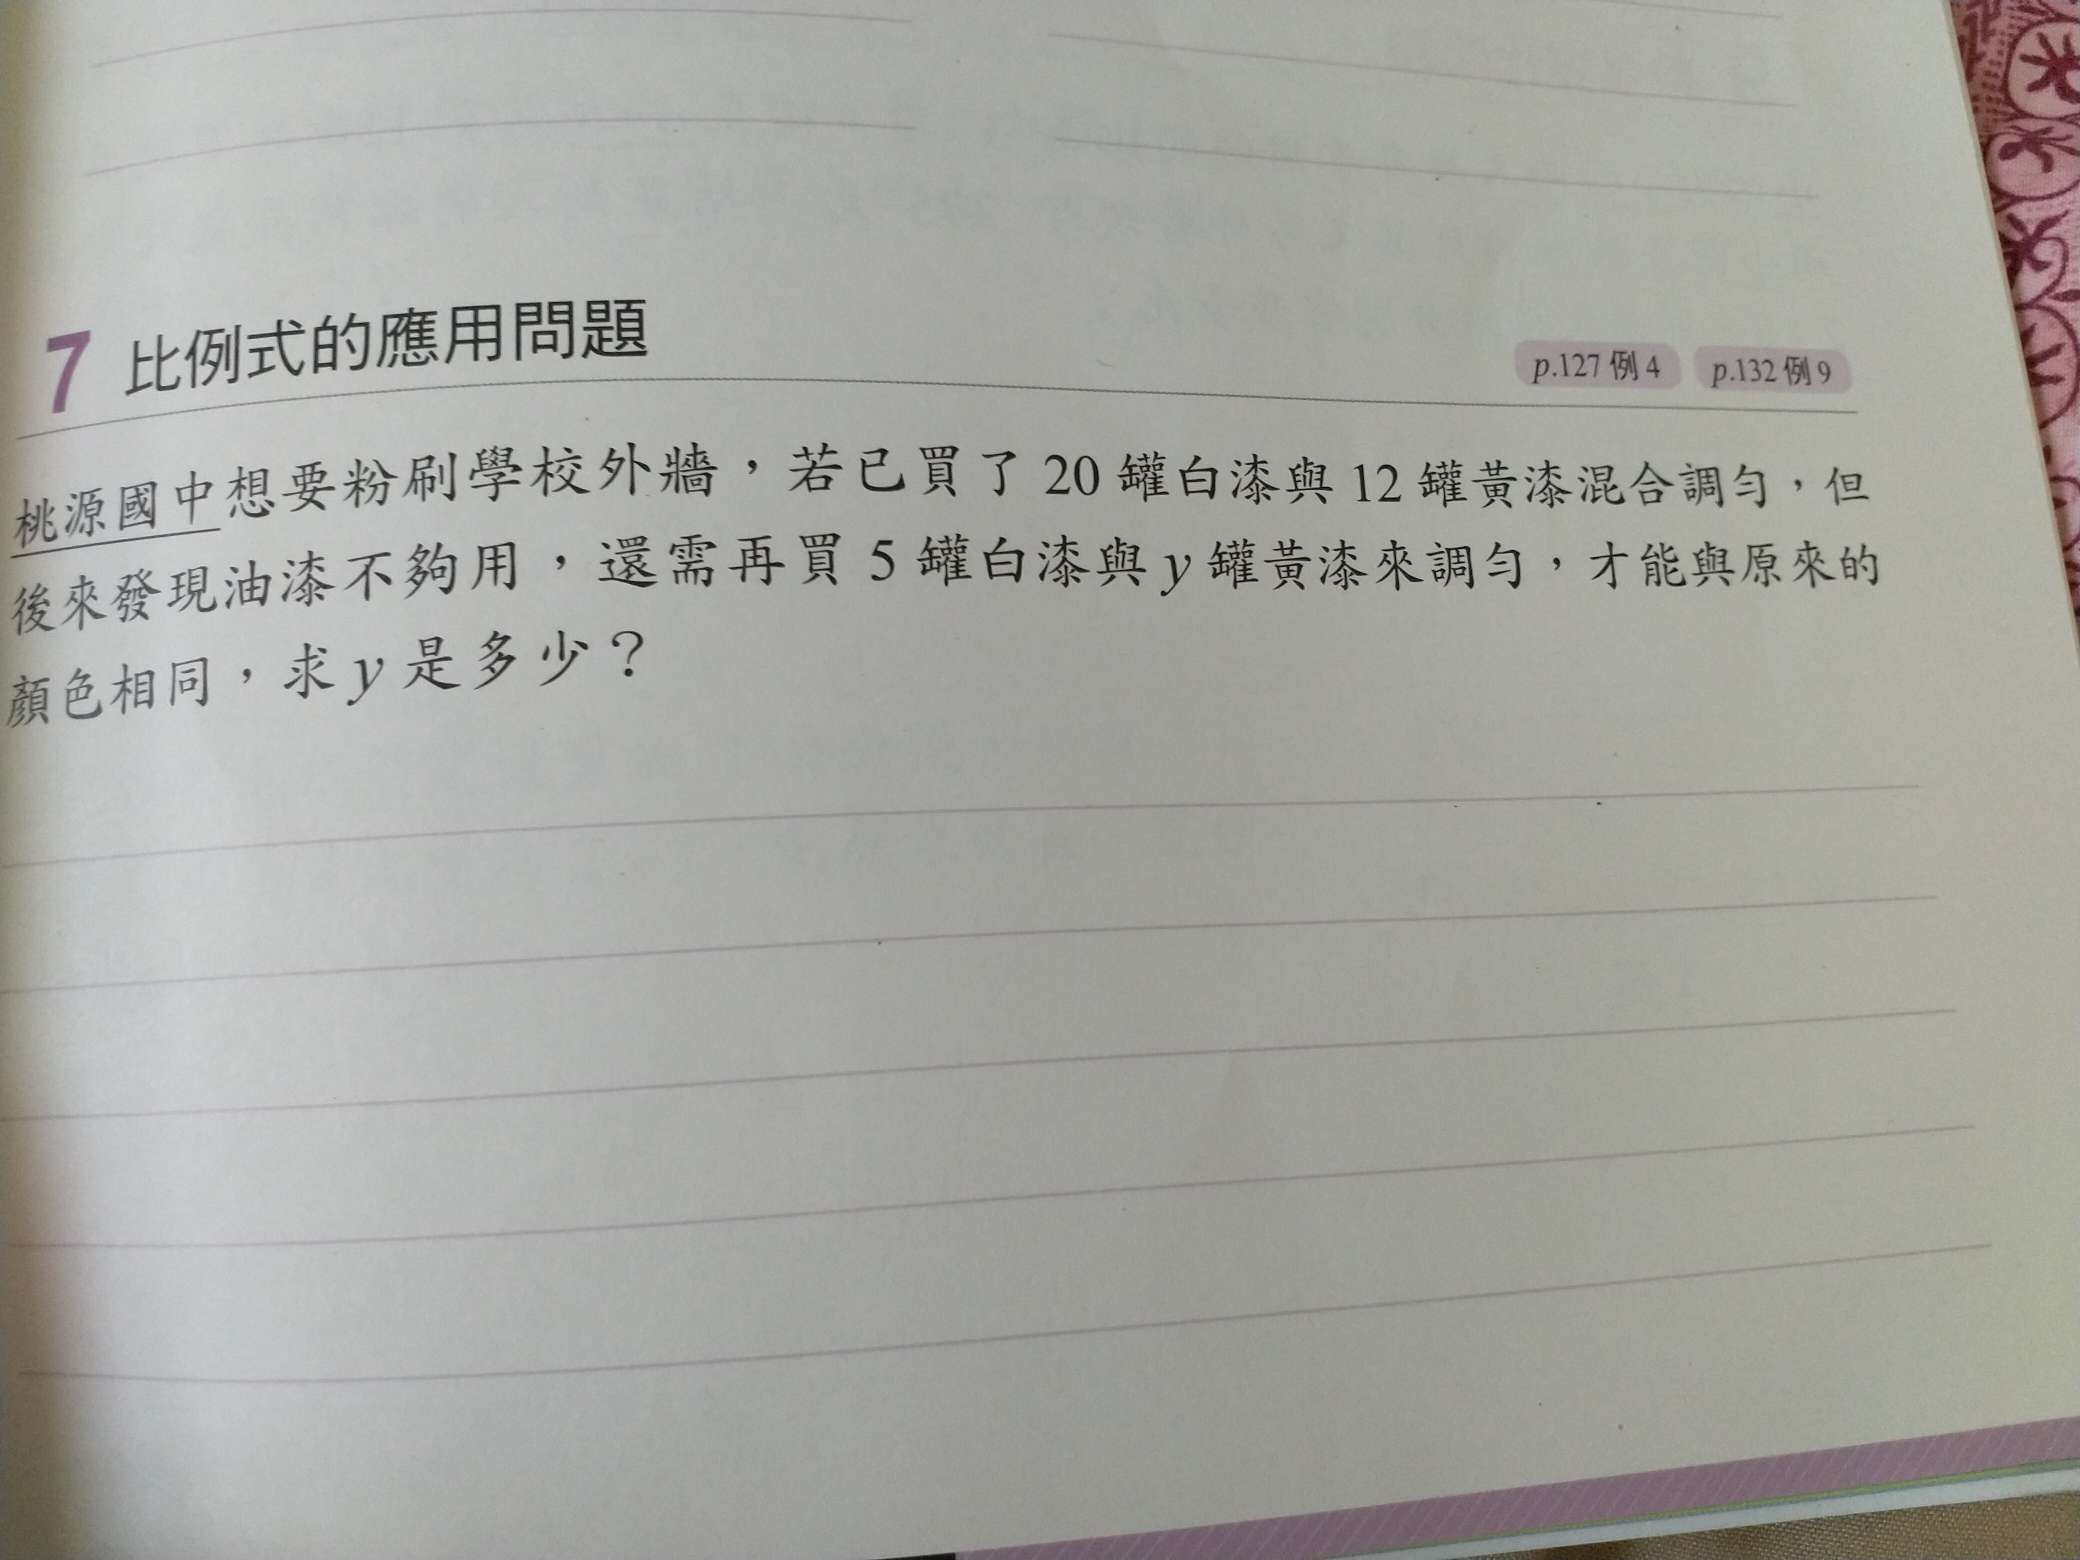 7 比例式的應用問題
p.127 例 4 p.132 例 9
桃源國中想要粉刷學校外牆，若已買了 20 罐白漆與 12 罐黃漆混合調勻，但
後來發現油漆不夠用，還需再買 5 罐白漆與 y 罐黃漆來調勻，才能與原來的
顏色相同，求 y 是多少？